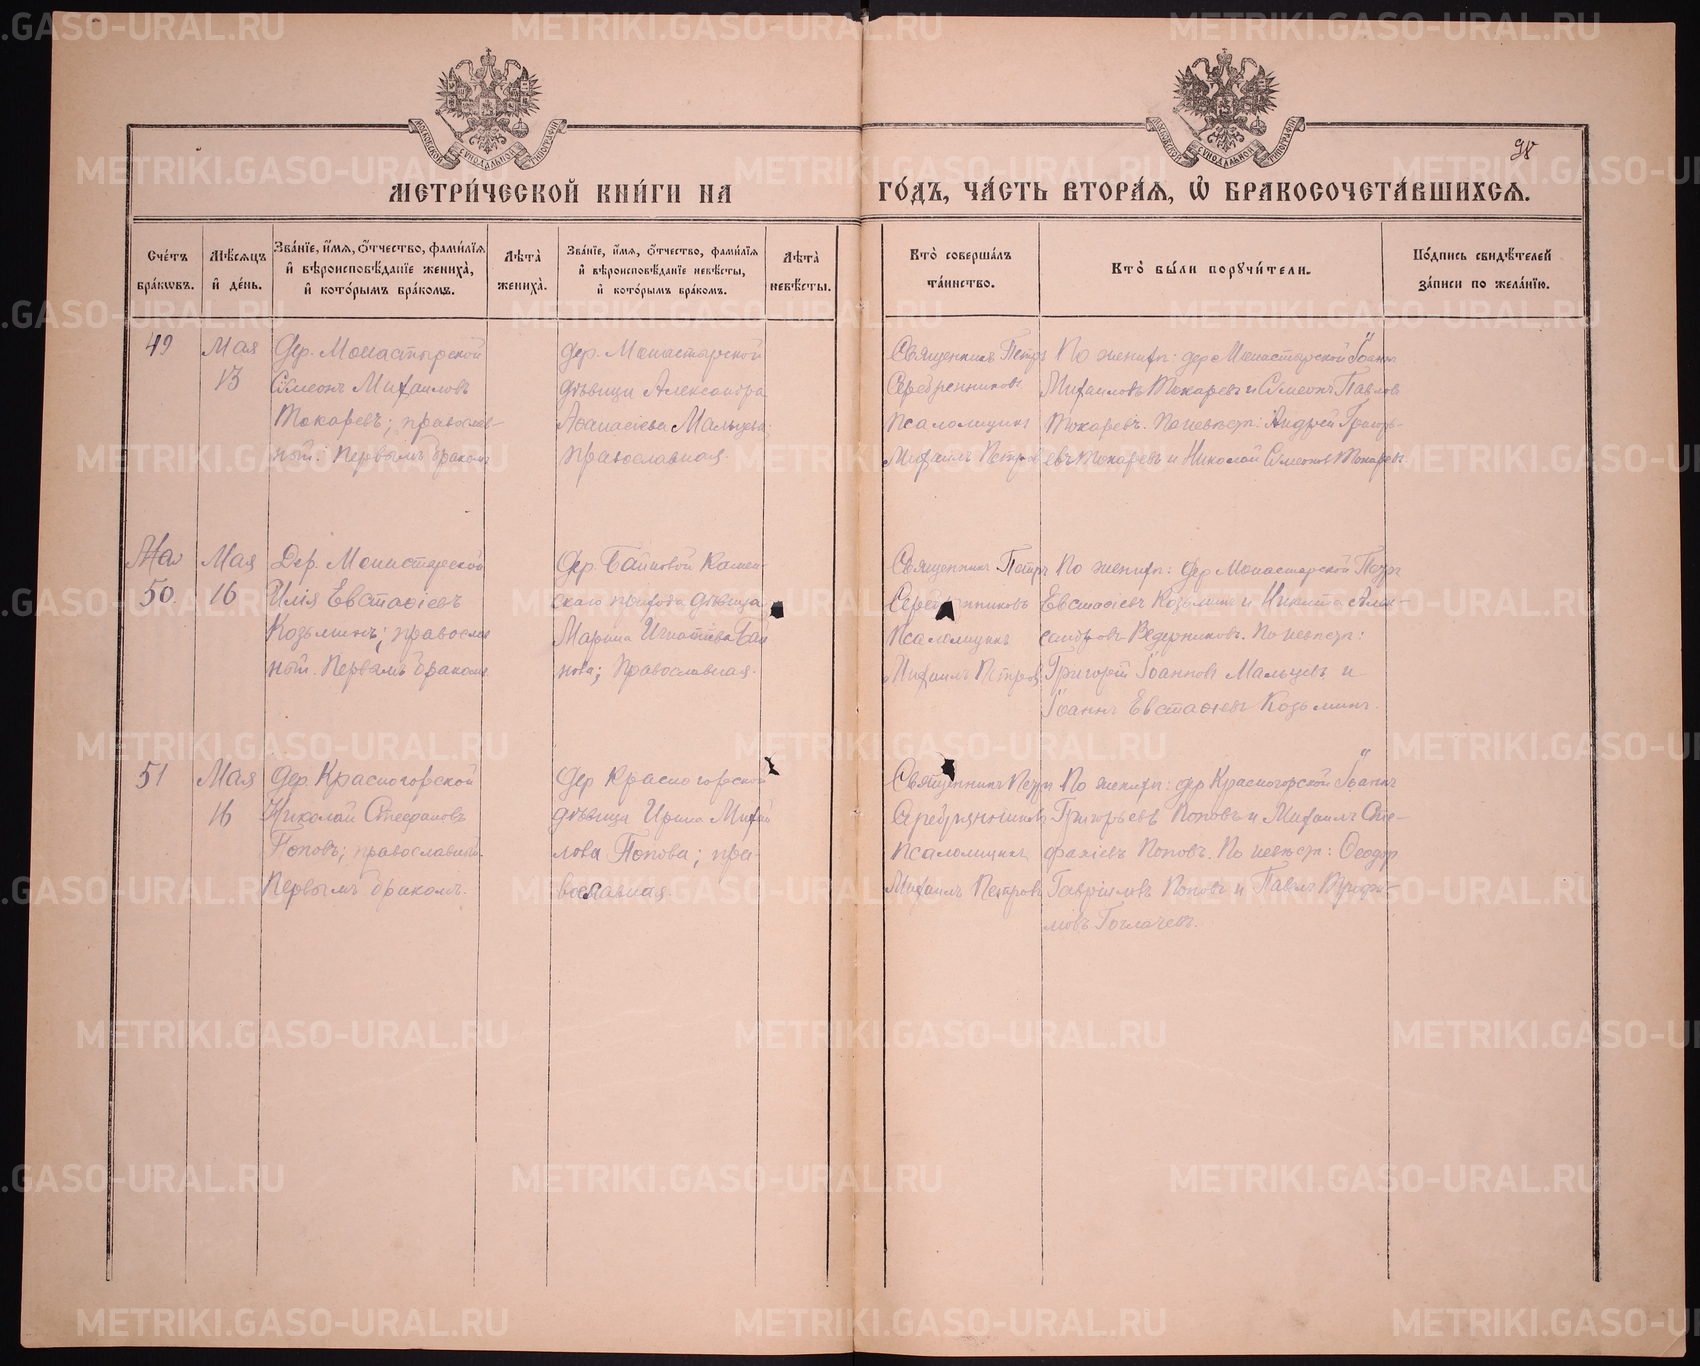 98
МЕТРИ́ЧЕСКОЙ КНИ́ГИ НА ГО́ДЪ, ЧА́СТЬ ВТОРА́Я, Ѡ БРАКОСОЧЕТА́ВШИХСЯ.
Сче́тъ бра́ковъ.
Мѣ́сяцъ и де́нь.
Зва́нїе, и́мя, о́тчество, фами́лїя и вѣроисповѣ́данїе жениха̀, и кото́рымъ бра́комъ.
Лѣта̀ жениха̀.
Зва́нїе, и́мя, о́тчество, фами́лїя и вѣроисповѣ́данїе невѣ́сты, и кото́рымъ бра́комъ.
Лѣта̀ невѣ́сты.
Кто̀ соверша́лъ та́инство.
Кто̀ бы́ли поручи́тели.
По́дпись свидѣ́телей за́писи по жела́нїю.
49
Мая
13
Дер. Монастырской
Сѵмеонъ Михаиловъ
Токаревъ; православ-
ный. Первымъ бракомъ
дер. Монастырской
дѣвица Александра
Аѳанасіева Мальцева
православная.
Священникъ Петръ
Серебренниковъ
Псаломщикъ
Михаилъ Петров
По жених: дер. Монастырской Іоаннъ
Михаиловъ Токаревъ и Сѵмеонъ Павлов
Токаревъ. По невѣст: Андрей Григорь-
евъ Токаревъ и Николай Сѵмеонов Токаревъ
50.
Мая
16
Дер. Монастырской
Илія Евстаѳіевъ
Козьминъ; православ
ный. Первымъ бракомъ
Дер. Байновой Камен-
скаго прихода дѣвица
Марина Игнатіева Бай
нова; Православная.
Священникъ Петръ
Серебренниковъ
Псаломщикъ
Михаилъ Петров
По жених: дер. Монастырской Петръ
Евстаѳіевъ Козьминъ и Никита Алек-
сандровъ Ведерниковъ. По невѣст:
Григорій Іоанновъ Мальцевъ и
Іоаннъ Евстаѳіевъ Козьминъ.
51
Мая
16
Дер. Красногорской
Николай Стефановъ
Поповъ; православный.
Первымъ бракомъ.
Дер Красногорской
дѣвица Ирина Михаи
лова Попова; пра-
вославная
Священникъ Петръ
Серебрянников
Псаломщикъ
Михаилъ Петровъ
По жених: дер Красногорской Іоаннъ
Григорьевъ Поповъ и Михаилъ Сте-
фаніевъ Поповъ. По невѣст: Ѳеодор
Гавріиловъ Поповъ и Павлъ Трофи-
мовъ
METRIKI.GASO-URAL.RU